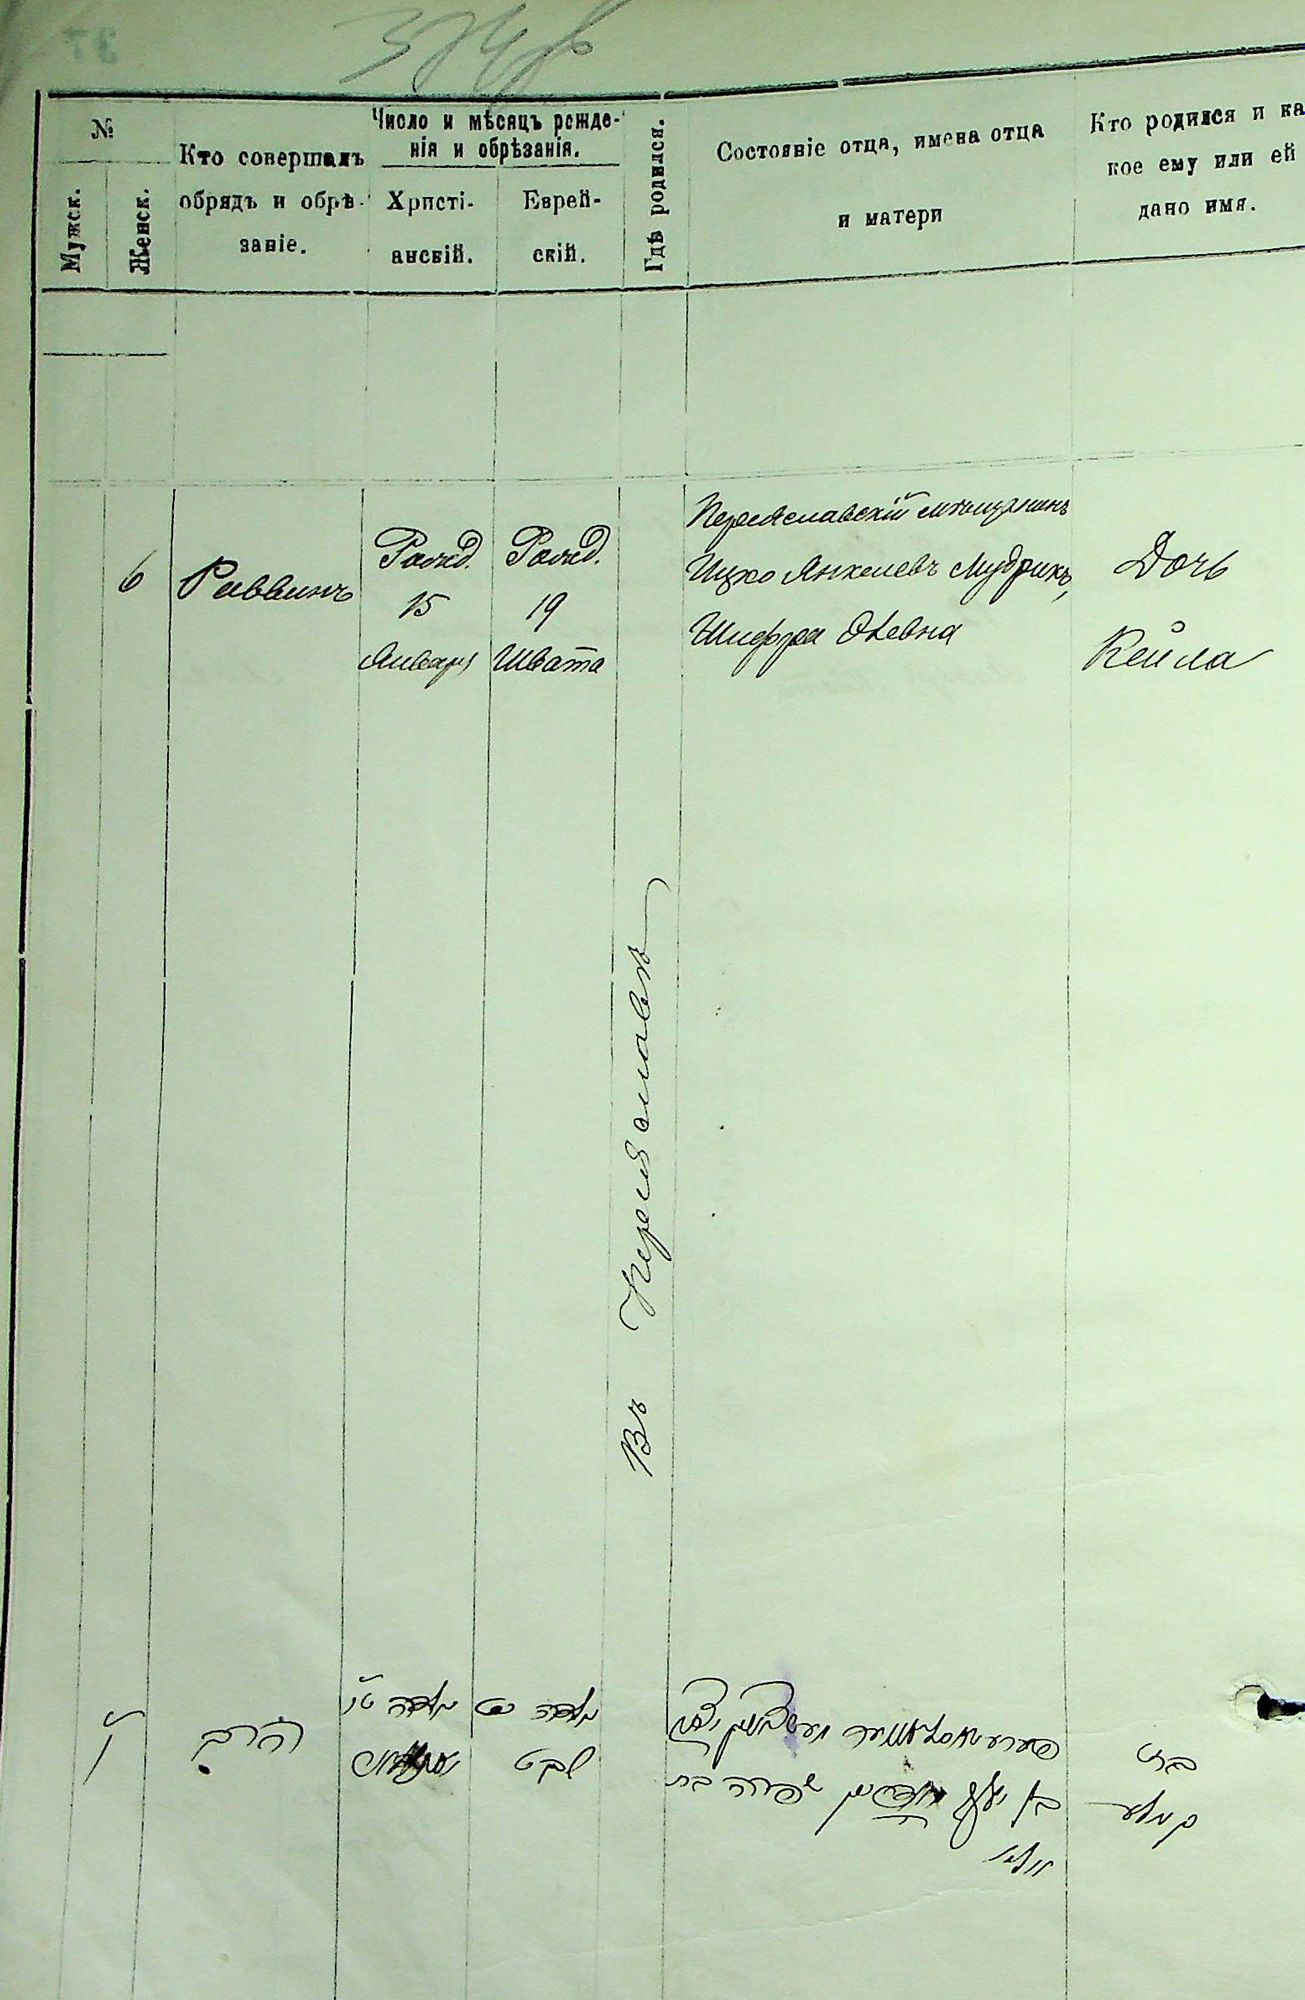 37
№
Мужск.
Женск.
Кто совершалъ
обрядъ и обрѣ-
заніе.
Число и мѣсяцъ рожде-
нія и обрѣзанія.
Христі-
анскій.
Еврей-
скій.
Гдѣ родился.
Состояніе отца, имена отца
и матери
Кто родился и ка
кое ему или ей
дано имя.
6
Раввинъ
Рожд.
15
Января
Рожд.
19
Швата
Въ Переяславѣ
Переяславскій мѣщанинъ
Ицко Янкелевъ Мудрикъ,
Шифра
Дочь
Кейла
הרב
נולדה טו
נולדה
שבט
שפרה בת
בת
קיילע